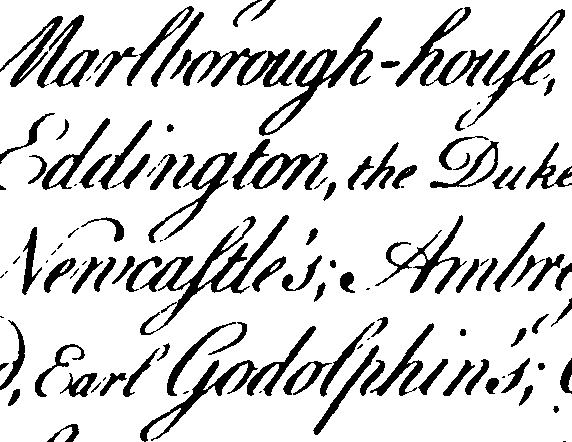 Marlborough-houſe,
Eddington, the Duke
Newcaſtle's; Ambre
d, Earl Godolphin's;